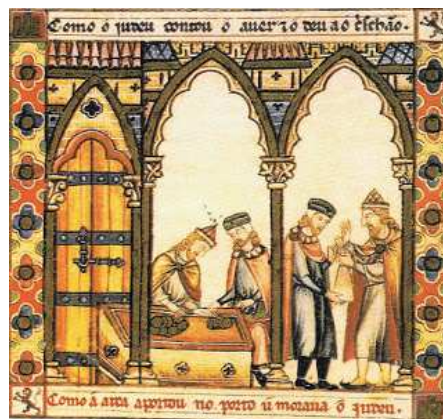 Como o judeu contou o auer τ o deu ao c̃schão.
Como a arca aportou no porto u moraua o judeu.